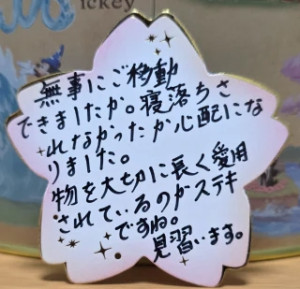 ickey
無事にご移動
できましたか。寝落ちさ
れなかったか心配にな
りました。
物を大切に長く愛用
されているのがステキ
ですね。
見習います。